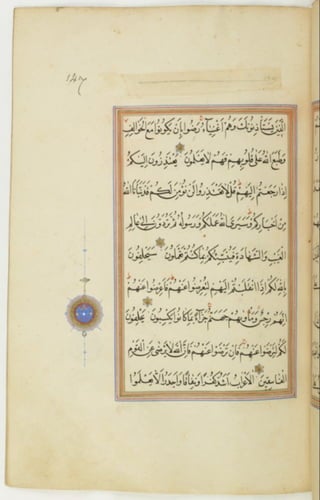 147
الَّذِينَ يَسْتَأْذِنُونَكَ وَهُمْ أَغْنِيَاءُ رَضُوا بِأَنْ يَكُونُوا مَعَ الْخَوَالِفِ
وَطَبَعَ اللَّهُ عَلَى قُلُوبِهِمْ فَهُمْ لَا يَعْلَمُونَ يَعْتَذِرُونَ إِلَيْكُمْ
إِذَا رَجَعْتُمْ إِلَيْهِمْ قُلْ لَا تَعْتَذِرُوا لَنْ نُؤْمِنَ لَكُمْ قَدْ نَبَّأَنَا اللَّهُ
مِنْ أَخْبَارِكُمْ وَسَيَرَى اللَّهُ عَمَلَكُمْ وَرَسُولُهُ ثُمَّ تُرَدُّونَ إِلَى عَالِمِ
الْغَيْبِ وَالشَّهَادَةِ فَيُنَبِّئُكُمْ بِمَا كُنْتُمْ تَعْمَلُونَ سَيَحْلِفُونَ
بِاللَّهِ لَكُمْ إِذَا انْقَلَبْتُمْ إِلَيْهِمْ لِتُعْرِضُوا عَنْهُمْ فَأَعْرِضُوا عَنْهُمْ
إِنَّهُمْ رِجْسٌ وَمَأْوَاهُمْ جَهَنَّمُ جَزَاءً بِمَا كَانُوا يَكْسِبُونَ يَحْلِفُونَ
لَكُمْ لِتَرْضَوْا عَنْهُمْ فَإِنْ تَرْضَوْا عَنْهُمْ فَإِنَّ اللَّهَ لَا يَرْضَى عَنِ الْقَوْمِ
الْفَاسِقِينَ الْأَعْرَابُ أَشَدُّ كُفْرًا وَنِفَاقًا وَأَجْدَرُ أَلَّا يَعْلَمُوا